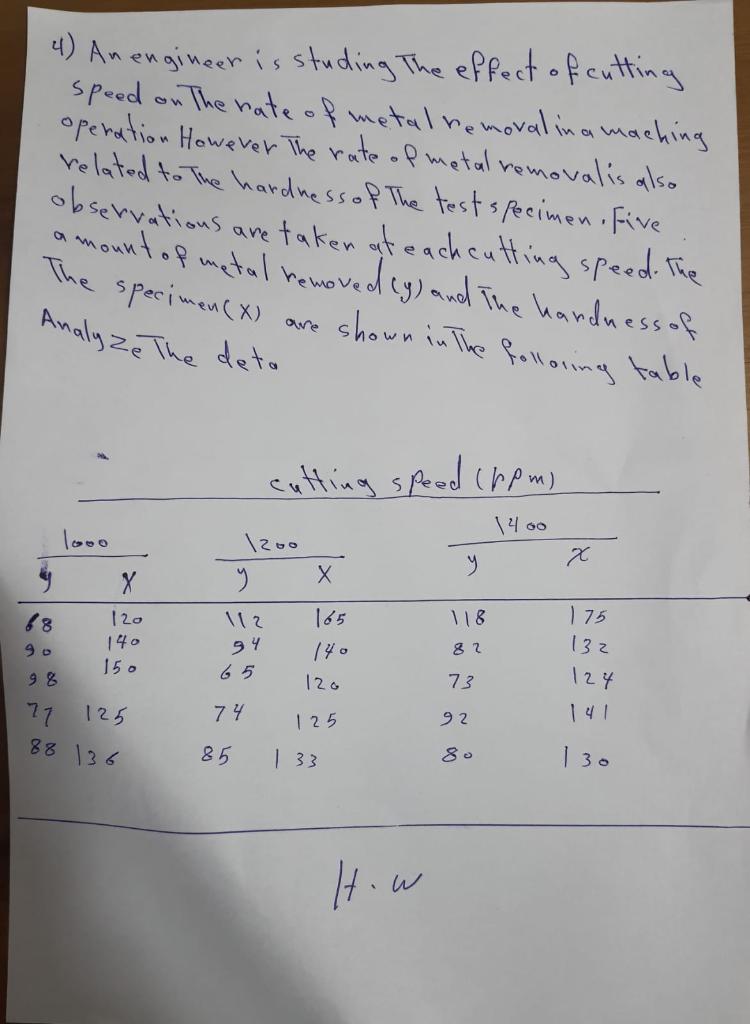 4) An engineer is studing The effect of cutting
speed on The rate of metal removal in a maching
operation However The rate of metal removal is also
related to The hardness of The test specimen. Five
observations are taken at each cutting speed. The
amount of metal removed (y) and The hardness of
The specimen (X) are shown in The following table
Analyze The deta
cutting speed (rpm)
1000 1200 1400
y X y X y x
68 120 112 165 118 175
90 140 94 140 82 132
98 150 65 120 73 124
77 125 74 125 92 141
88 136 85 133 80 130
H.W